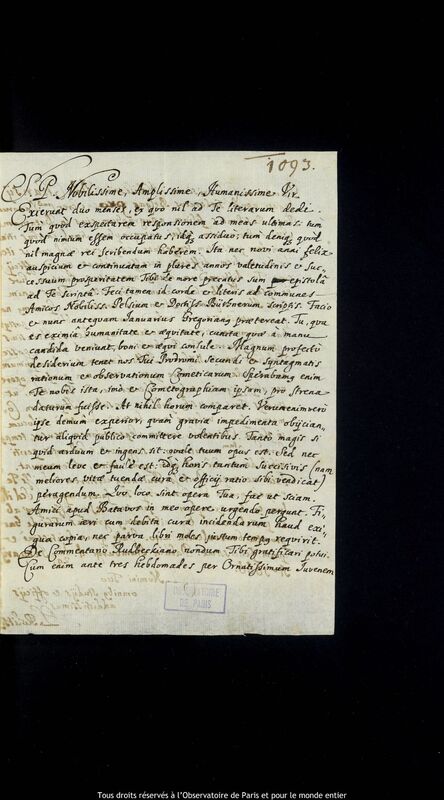 1093.
C. S. P. Nobilissime, Amplissime, Humanissime Vir.
Exierunt duo menses, ex quo nil ad Te literarum dedi.
Tum quòd expectarem responsionem ad meas ultimas: tum
quòd nimium essem occupatus, idq; assiduo: tum deniq; quòd
nil magnae rei scribendum haberem. Ita nec novi anni felix
auspicium et continuatam in plures annos valetudinis et suc-
cessuum prosperitatem Tibi de more precatus sum epistolâ
ad Te scriptâ. Feci tamen id corde et literis ad communes
Amicos Nobiliss. Pelsium et Doctiss. Büthnerum scriptis. Facio
et nunc antequam Januarius Gregoriang praetereat. Tu, quâ
es eximiâ humanitate et aequitate, cuncta quae à manu
candida veniunt, boni et aequi consule. Magnum profectò
desiderium tenet nos Tui Prodromi secundi et Syntagmatis
rationum et observationum Cometicarum. Sperabamg enim
Te nobis ista, imò et Cometographiam ipsam, pro strena
daturum fuisse. At nihil horum comparet. Verumenimverò
ipse demum experior, quàm gravia impedimenta obijcian-
tur aliquid publico committere volentibus. Tantò magis si
quid arduum et ingens sit: quale tuum opus est. Sed nec
meum leve et facile est: idq; horis tantum succisivis (nam
meliores vitae tuendae cura et officij ratio sibi vendicat)
peragendum. Quo loco sint opera Tua, fac ut sciam.
Amici apud Batavos in meo opere urgendo pergunt. Fi-
gurarum aeri cum debita cura incidendarum haud exi-
gua copia, nec parva libri moles justum tempg requirit.
De Commentario Rudbeckiano nondum Tibi gratificari potui.
Cum enim ante tres hebdomades per Ornatissimum Juvenem
OBSERVATOIRE
DE PARIS
Tous droits réservés à l'Observatoire de Paris et pour le monde entier